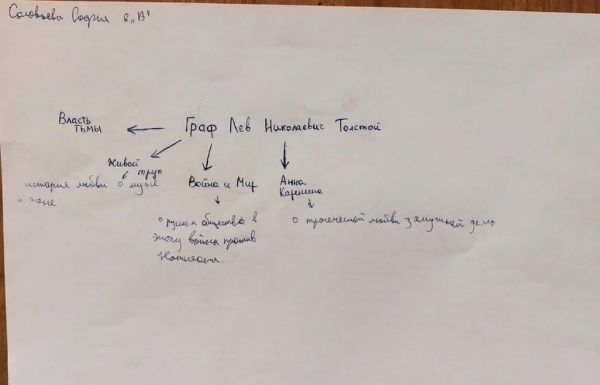 Соловьева София 8 „В"
Граф Лев Николаевич Толстой
Власть
тьмы
Живой
труп
история любви о муже
и жене
Война и Мир
о русском обществе в
эпоху войны против
Наполеона.
Анна
Каренина
о трагической любви замужней дамы